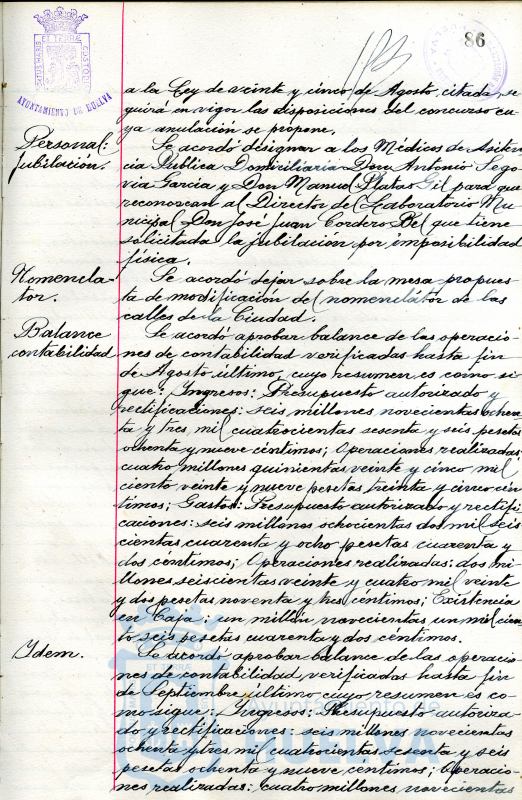 86
AYUNTAMIENTO DE HUELVA
a la Ley de veinte y cinco de Agosto citada se-
guirá en vigor las disposiciones del concurso cu-
ya anulación se propone.
Personal:
Jubilación.
Se acordó designar a los Médicos de Asisten-
cia Pública Domiciliaria Don Antonio Sego-
via Garcia y Don Manuel Platas Gil para que
reconozcan al Director del Laboratorio Mu-
nicipal Don José Juan Cordero Bel que tiene
solicitada la jubilación por imposibilidad
física.
Nomencla-
tor.
Se acordó dejar sobre la mesa propues-
ta de modificación del nomenclator de las
calles de la Ciudad.
Balance
contabilidad
Se acordó aprobar balance de las operacio-
nes de contabilidad verificadas hasta fin
de Agosto último, cuyo resumen es como si-
gue: Ingresos: Presupuesto autorizado y
rectificaciones: seis millones novecientas ochen-
ta y tres mil cuatrocientas sesenta y seis pesetas
ochenta y nueve céntimos; Operaciones realizadas:
cuatro millones quinientas veinte y cinco mil
ciento veinte y nueve pesetas treinta y cinco cén-
timos; Gastos: Presupuesto autorizado y rectifi-
caciones: seis millones ochocientas dos mil seis
cientas cuarenta y ocho pesetas cuarenta y
dos céntimos; Operaciones realizadas: dos mi-
llones seiscientas veinte y cuatro mil veinte
y dos pesetas noventa y tres céntimos; Existencia
en Caja: un millón novecientas un mil cien-
to seis pesetas cuarenta y dos céntimos.
Idem.
Se acordó aprobar balance de las operacio-
nes de contabilidad, verificadas hasta fin
de Septiembre último cuyo resumen es co-
mo sigue: Ingresos: Presupuesto autoriza-
do y rectificaciones: seis millones novecientas
ochenta y tres mil cuatrocientas sesenta y seis
pesetas ochenta y nueve céntimos; Operacio-
nes realizadas: cuatro millones novecientas
ET TERRÆ
Ayuntamiento de
HUELVA